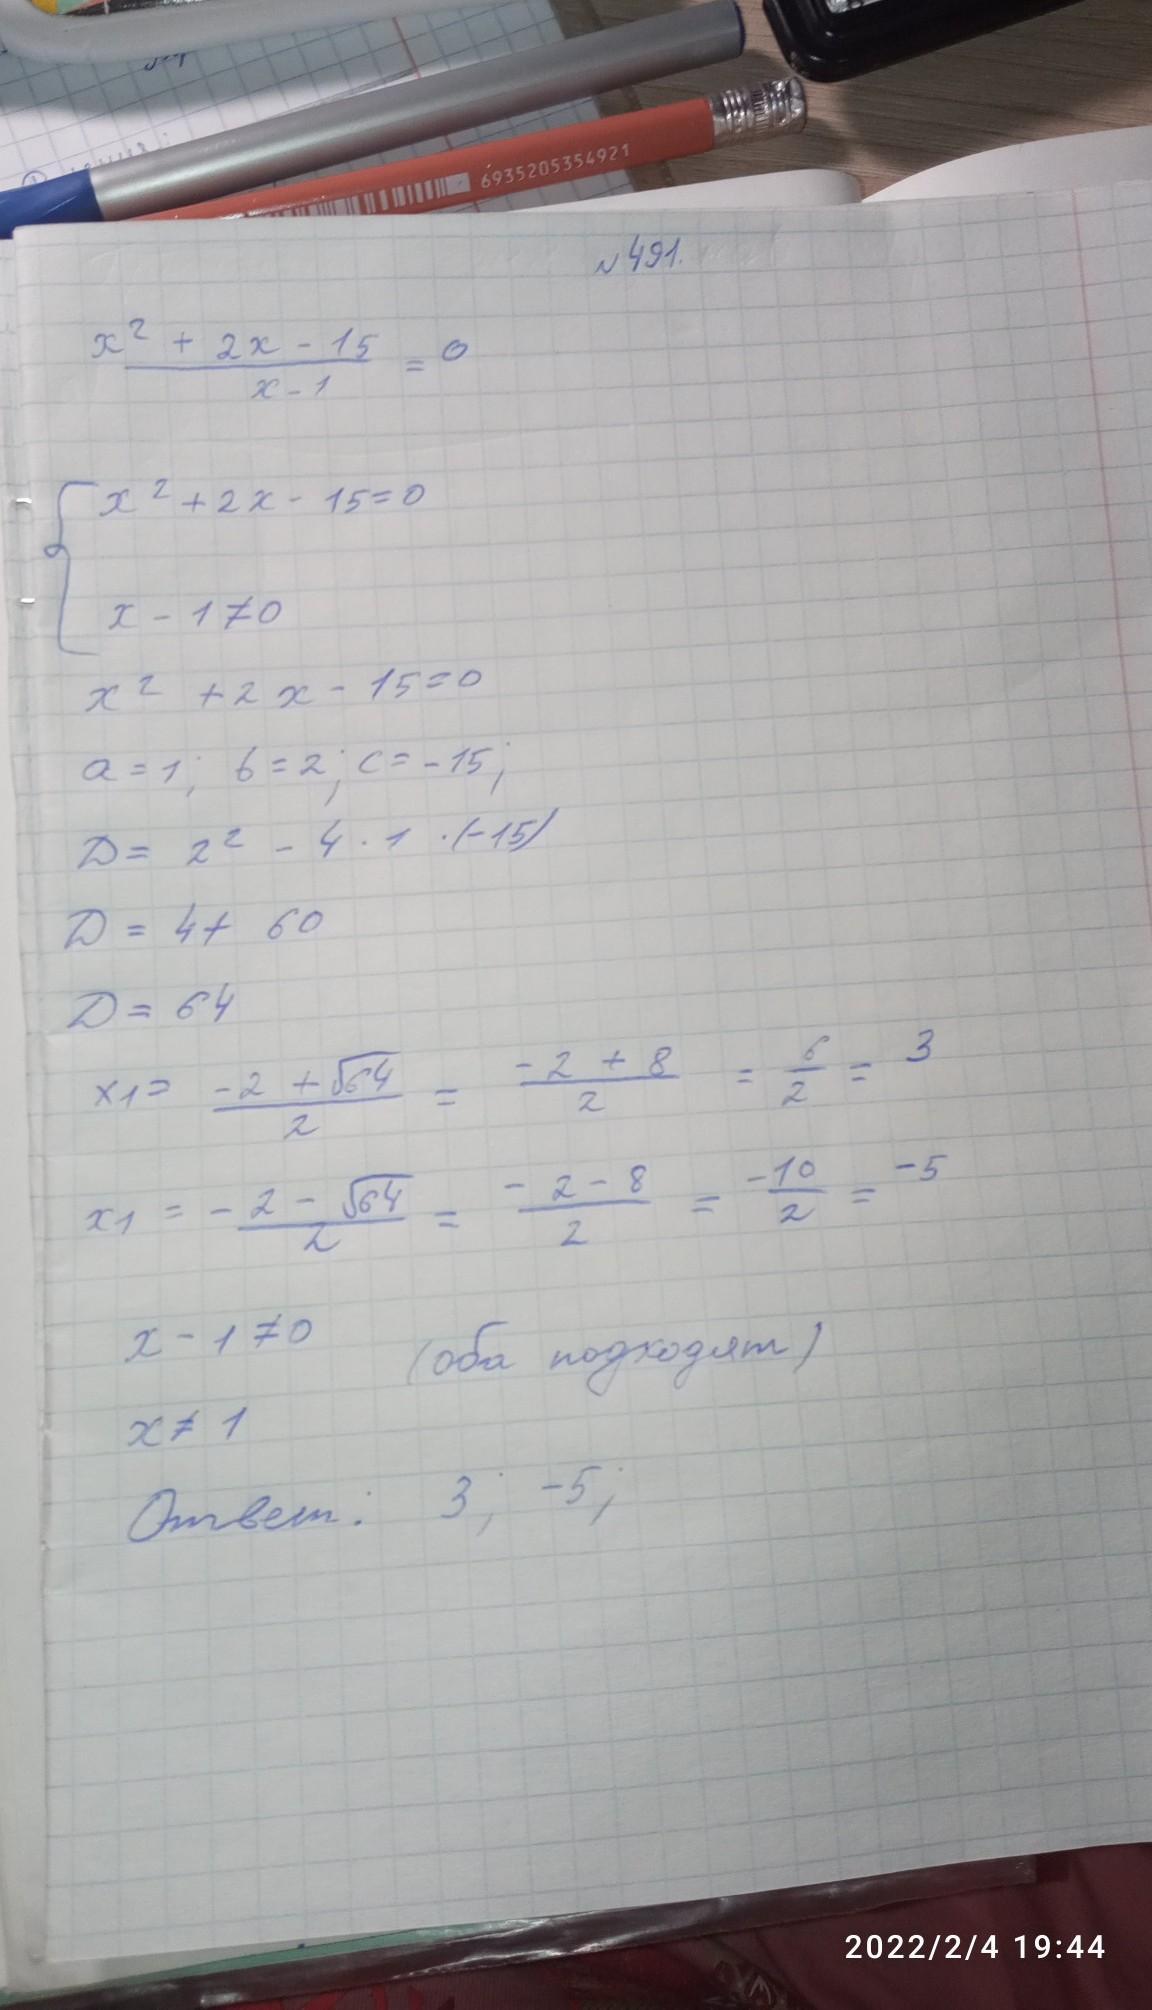 6935205354921
№491.
x² + 2x - 15 / x - 1 = 0
{ x² + 2x - 15 = 0
x - 1 ≠ 0
x² + 2x - 15 = 0
a = 1; b = 2; c = -15;
D = 2² - 4 · 1 · (-15)
D = 4 + 60
D = 64
x1 = -2 + √64 / 2 = -2 + 8 / 2 = 6 / 2 = 3
x1 = -2 - √64 / 2 = -2 - 8 / 2 = -10 / 2 = -5
x - 1 ≠ 0 (оба подходят)
x ≠ 1
Ответ: 3; -5;
2022/2/4 19:44